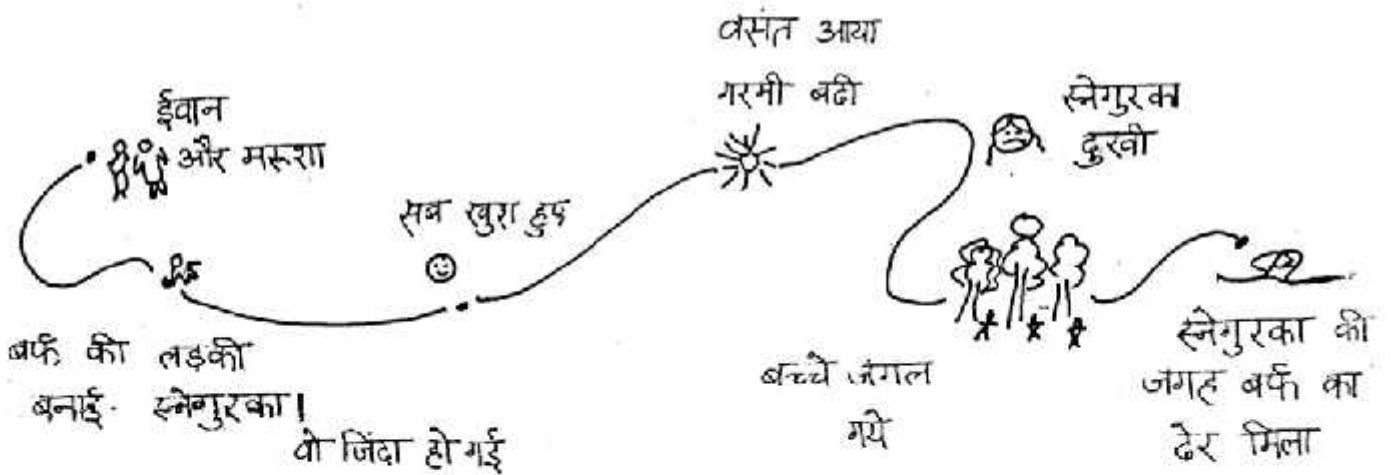 ईवान
और मरूशा
बर्फ की लड़की
बनाई. स्नेगुरका!
वो जिंदा हो गई
सब खुश हुए
वसंत आया
गरमी बढी
स्नेगुरका
दुखी
बच्चे जंगल
गये
स्नेगुरका की
जगह बर्फ का
ढेर मिला